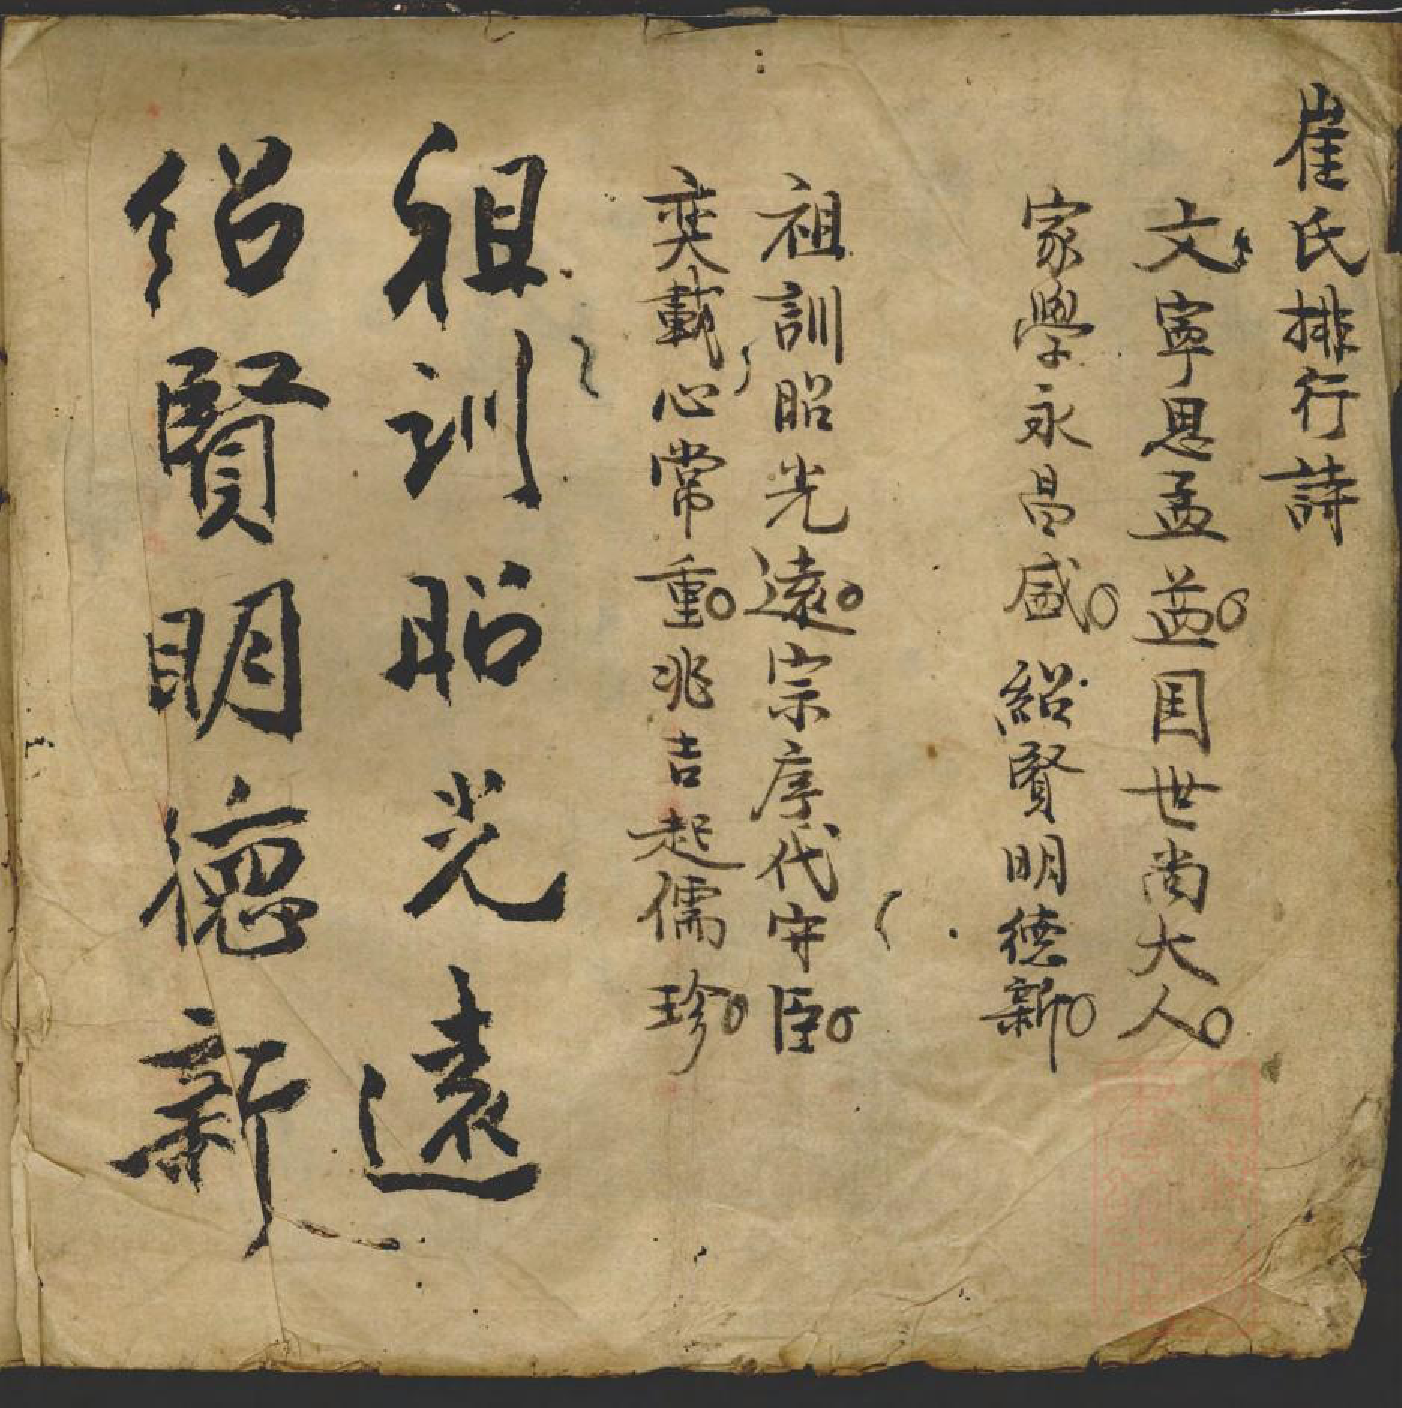 崔氏排行詩
文寧思孟益。国世尚大人。
家學永昌盛。紹賢明德新。
祖訓昭光遠。宗序代守臣。
奕載心常重。兆吉起儒珍。
祖訓昭光遠
紹賢明德新